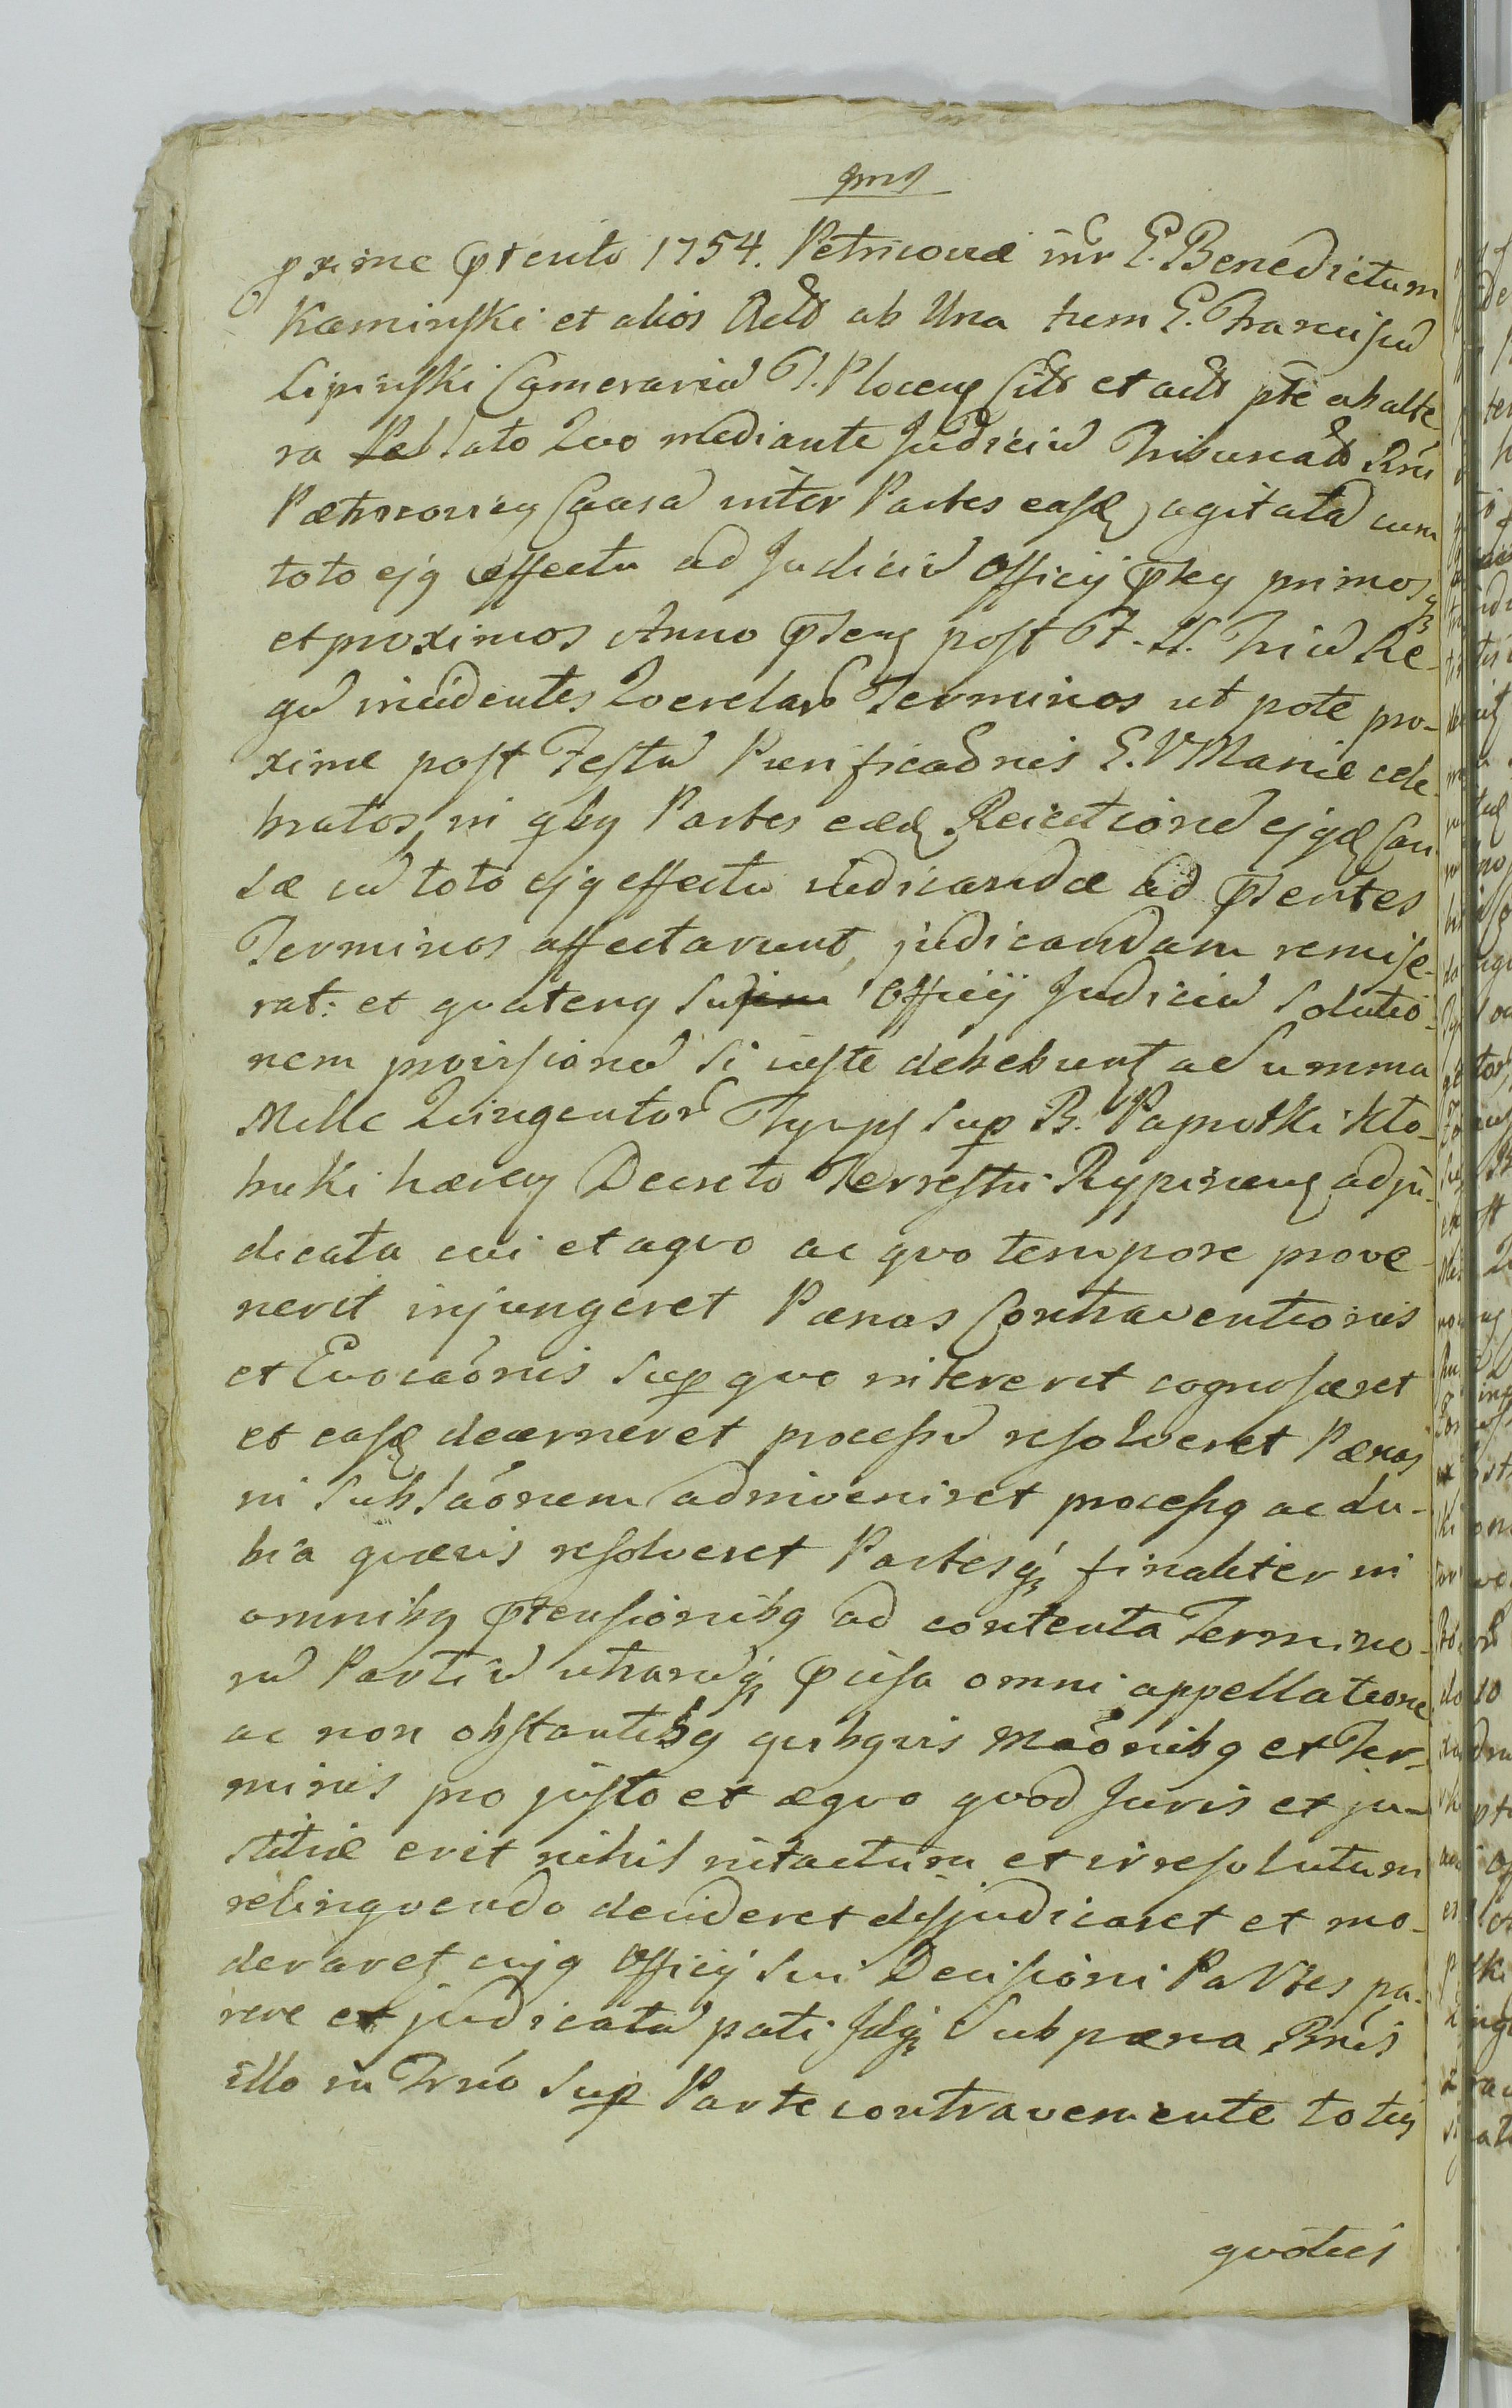 pxime pterito 1754. Petricoviæ intr G. Benedictum
Kaminski et alios Actd ab Una tum G. Franciscu
Lipinski Camerariu T. Plocen Citd et actd pte ab alte
ra lato Quo mediante Judiciu Tribunald Rni
Petricovien Causa inter Partes easd agitata cum
toto ejq effectu ad Judiciu Officij pteq primos
et proximos Anno pten post F. SS. Triu Re-
gu incidentes Querelard Terminos ut pote pro-
xime post Festu Purificaonis B. V Mariæ cele-
bratos, in qbq Partes eæd Reiectione ejqd Cau
sæ cu toto ejq effectu iudicandæ ad ptentes
Terminos affectarunt, judicandam remise-
rat: et quatenq Officij Judiciu Solutio-
nem provisiona si iuste debebunt a summa
Mille Quingentor Tynph sup B. Paprotki Kło-
buki hæreq Decreto Terrestri Rypinen adju-
dicata cui et a quo ac quo tempore prove-
nerit injungeret Pænas Contraventionis
et Evocaonis sup quo intererit cognosceret
et easd decerneret processu resolveret Pænas
in Sublaonem adinveniret processq ac du-
bia quævis resolveret Partesq finaliter in
omnibq ptensionibq ad contenta Termino-
ru Partiu utraruq pcisa omni appellatione
ac non obstantibq quibqvis Maonibq et Ter-
minis pro justo et æquo quod Juris et ju-
stitiæ erit nihil intactum et irresolutum
relinquendo decideret disjudicaret et mo-
deraret cujq Officij sui Decisioni Partes pa-
rere et judicatu pati Idq Sub pæna Bnis
illo in Trno sup Parte contraveniente toties
quoties